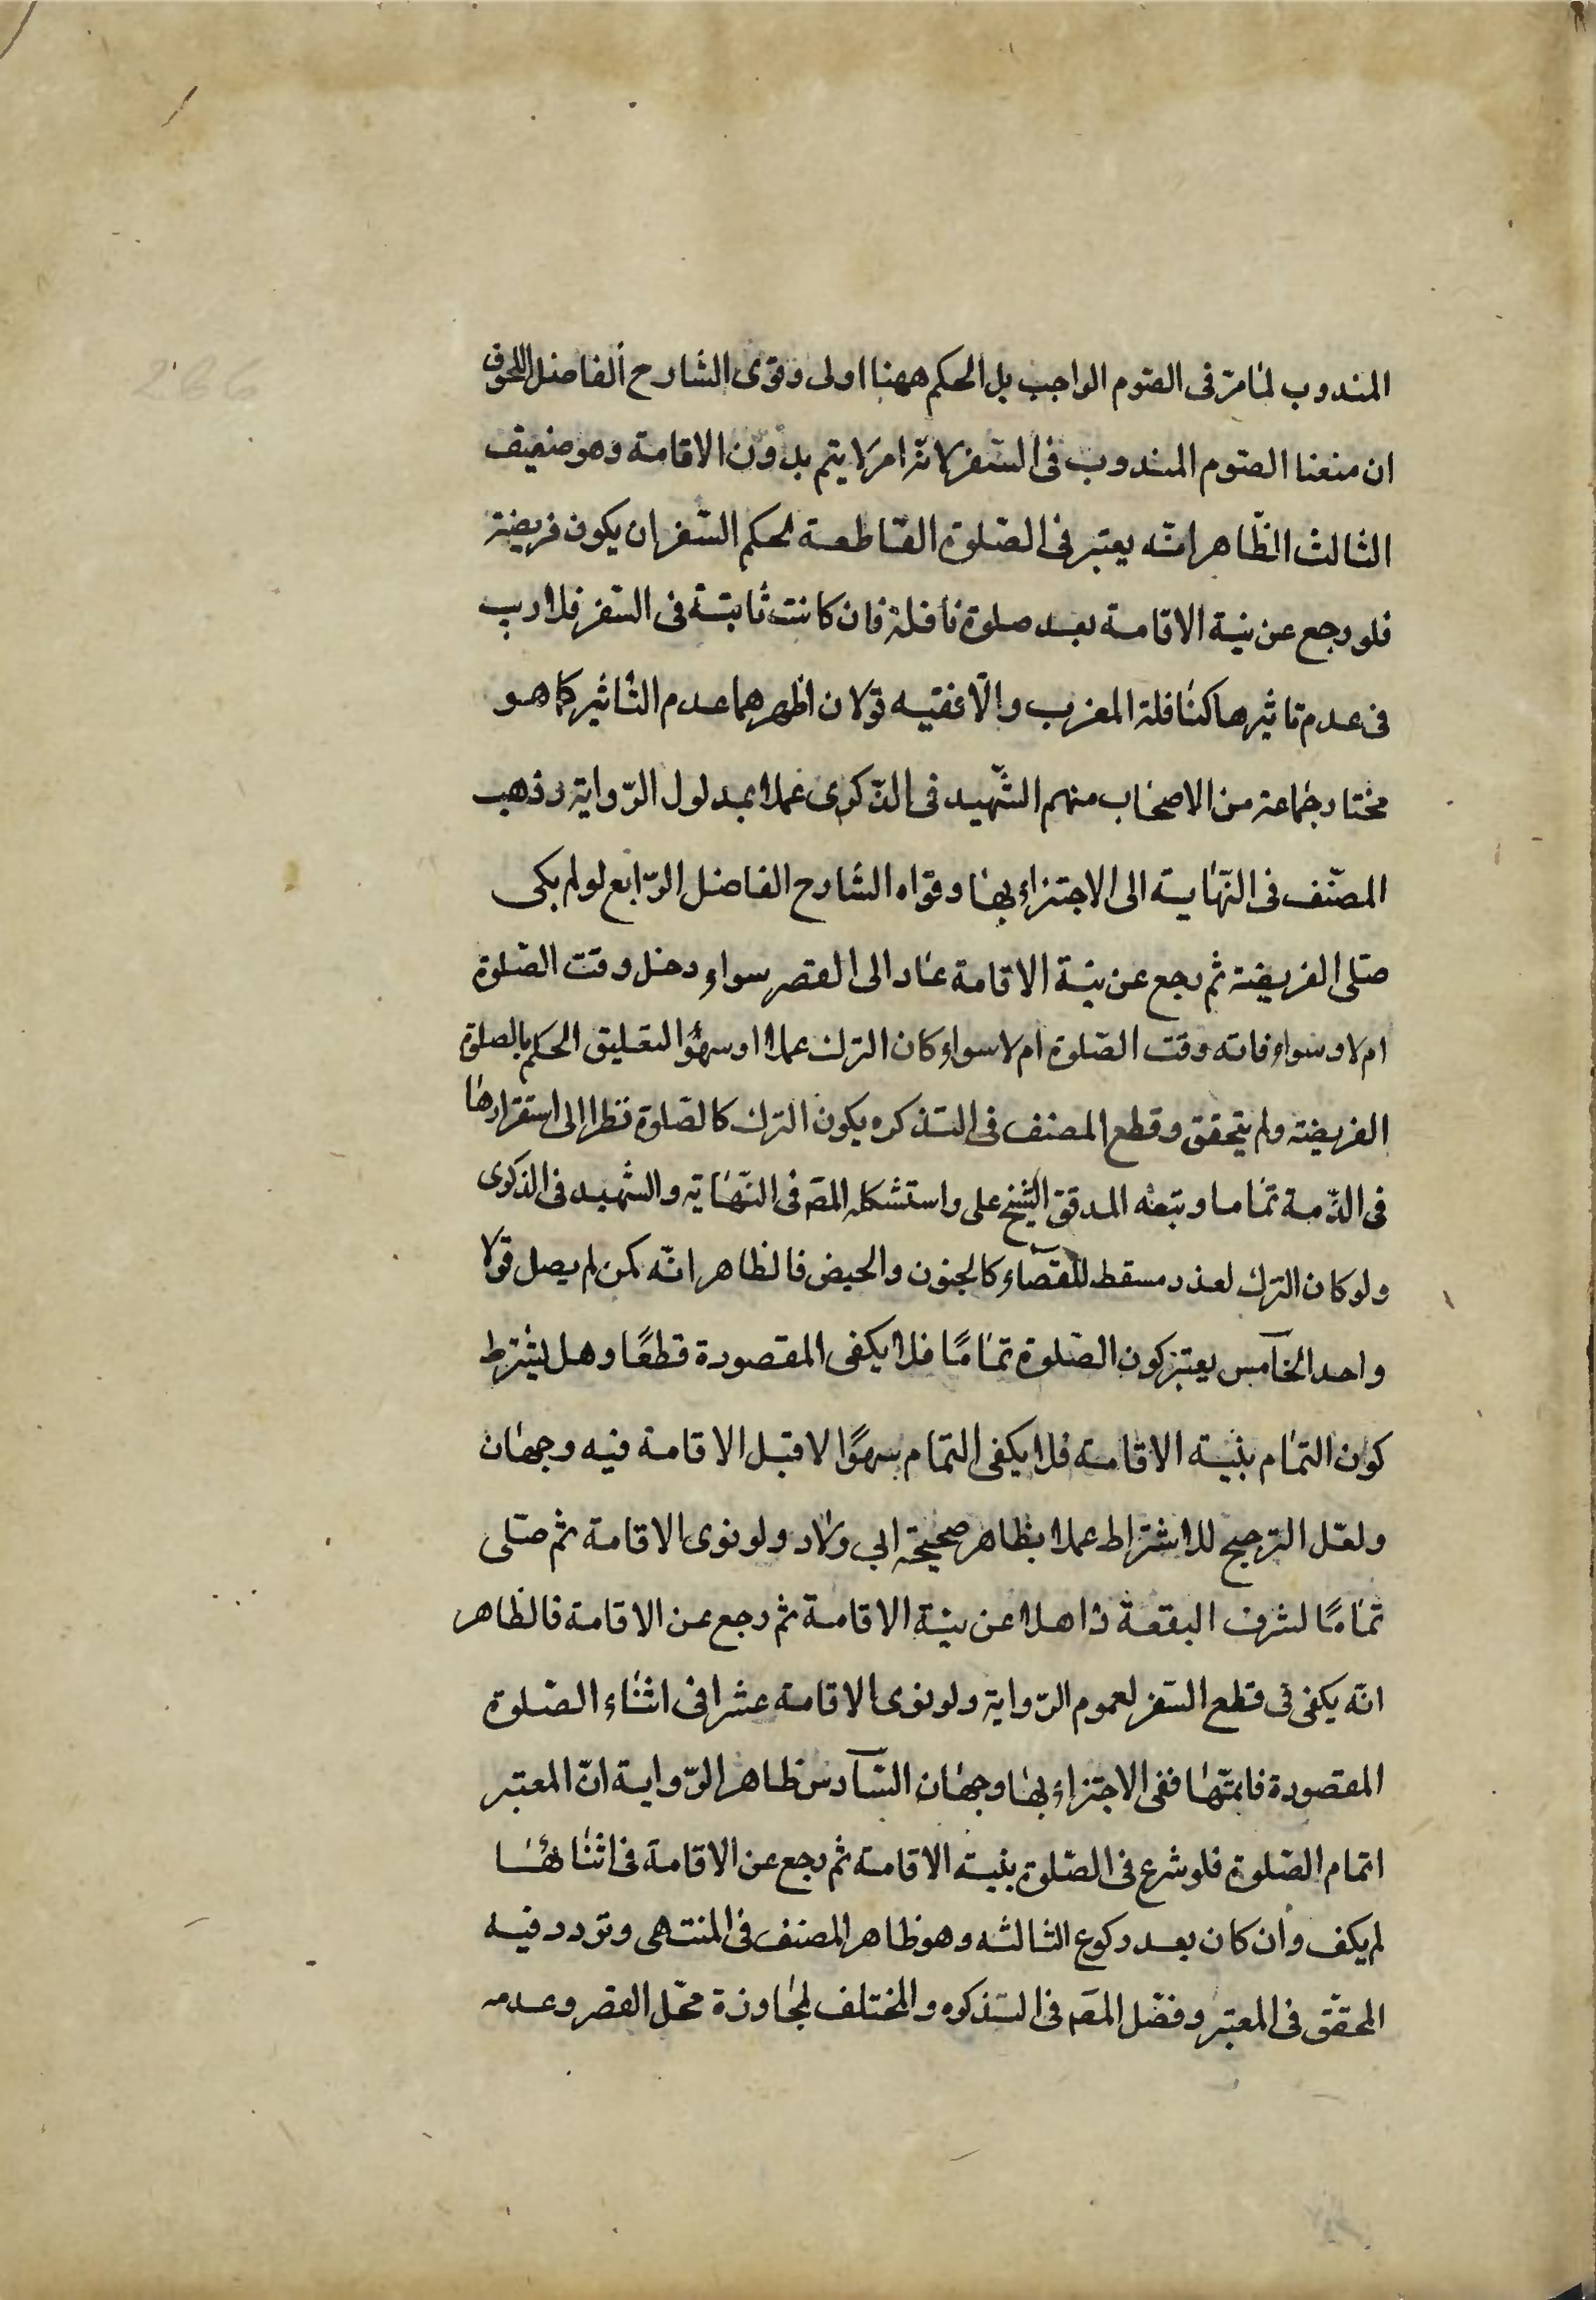 المندوب لما مرّ فى الصّوم الواجب بل الحكم ههنا اولى وقوى الشارح الفاضل اللحوق
ان منعنا الصّوم المندوب فى السّفر لانّه امر لا يتم بدون الاقامة وهو ضعيف
الثالث الظّاهر انّه يعتبر فى الصّلوة القاطعة لحكم السّفر ان يكون فريضة
فلو رجع عن نية الاقامة بعد صلوة نافلة فان كانت ثابتة فى السّفر فلا ريب
فى عدم تاثيرها كنافلة المغرب والّا ففيه قولان اظهرهما عدم التاثير كما هو
مختار جماعة من الاصحاب منهم الشّهيد فى الذّكرى عملا بمدلول الرّواية وذهب
المصنّف فى النّهاية الى الاجتزاء بها وقوّاه الشارح الفاضل الرّابع لو لم يكن
صلّى الفريضة ثم رجع عن نيّة الاقامة عاد الى القصر سواء دخل وقت الصّلوة
ام لا وسواء فاته وقت الصّلوة ام لا سواء كان الترك عملا او سهوًا لتعليق الحكم بالصلوة
الفريضة ولم يتحقق وقطع المصنف فى التذكره يكون الترك كالصّلوة نظرا الى استقرارها
فى الذّمة تماما وتبعه المدقق الشيخ على واستشكله المص فى النّهاية والشهيد فى الذكرى
ولو كان الترك لعذر مسقط للقضاء كالجنون والحيض فالظاهر انّه كمن لم يصل قولا
واحدا الخامس يعتبر كون الصّلوة تمامًا فلا يكفى المقصورة قطعًا وهل يشترط
كون التمام بنيّة الاقامة فلا يكفى التمام سهوًا لا قبل الاقامة فيه وجهان
ولعّل الترجيح للاشتراط عملا بظاهر صحيحة ابي ولّاد ولو نوى الاقامة ثم صلّى
تمامًا لشرف البقعة ذاهلا عن نيّة الاقامة ثم رجع عن الاقامة فالظاهر
انّه يكفى فى قطع السّفر لعموم الرّواية ولو نوى الاقامة عشرا فى اثناء الصّلوة
المقصورة فاتمّها ففى الاجتزاء بها وجهان السّادس ظاهر الرّواية انّ المعتبر
اتمام الصّلوة فلو شرع فى الصّلوة بنيّة الاقامة ثم رجع عن الاقامة فى اثنائها
لم يكف وان كان بعد ركوع الثالثه وهو ظاهر المصنف فى المنتهى وتردد فيه
المحقّق فى المعتبر وفصّل المص فى التذكره والمختلف لمجاوزة محّل القصر وعدمه